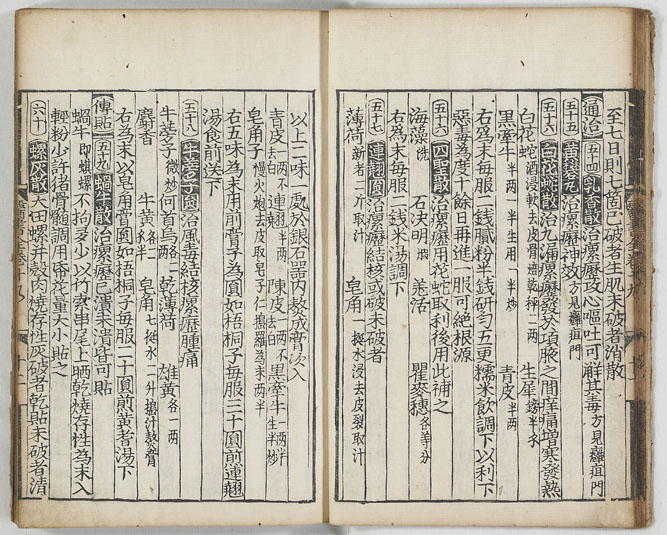 至七日則七箇已破者生肌未破者消散
通治 五十四 乳香散 治瘰癧攻心嘔吐可觧其毒 方見癰疽門
五十五 治瘰癧神效 方見癰疽門
五十六 白花蛇散 治九漏瘰癧發於項腋之間痒痛增寒發熱
白花蛇 酒浸軟去皮骨焙乾秤二兩 生犀 鎊半錢
黑牽牛 半兩一半生用一半炒 青皮 半兩
右爲末每服二錢膩粉半錢研勻五更糯米飮調下以利下
惡毒爲度十餘日再進一服可絶根源
五十六 四聖散 治瘰癧用花蛇取利後用此補之
海藻 洗 石決明 煆 羌活 瞿麥穗 各等分
右爲末每服二錢米湯調下
五十七 連翹圓 治瘰癧結核或破未破者
薄荷 新者二斤取汁 皂角 一挺水浸去皮裂取汁
以上二味一處於銀石器內熬成膏次入
青皮 一兩不去白 連翹 半兩 陳皮 一兩不去白 黑牽牛 一兩半生半炒
皂角子 慢火炮去皮取皂子仁擣羅爲末兩半
右五味爲末用前膏子爲圓如梧桐子每服三十圓前連翹
湯食前送下
五十八 牛蒡子圓 治風毒結核瘰癧腫痛
牛蒡子 微炒 何首烏 各二兩 乾薄荷 雄黃 各一兩
麝香 牛黃 各二錢半 皂角 七挺水二升擣汁熬膏
右爲末以皂角膏圓如梧桐子每服二十圓煎黃耆湯下
傅貼 五十九 蝸牛散 治瘰癧已潰未潰皆可貼
蝸牛 卽螟螺 不拘多少以竹𥮊串尾上晒乾燒存性爲末入
輕粉少許猪骨髓調用帋花量大小貼之
六十 螺灰散 大田螺幷殼肉燒存性灰破者乾貼未破者淸